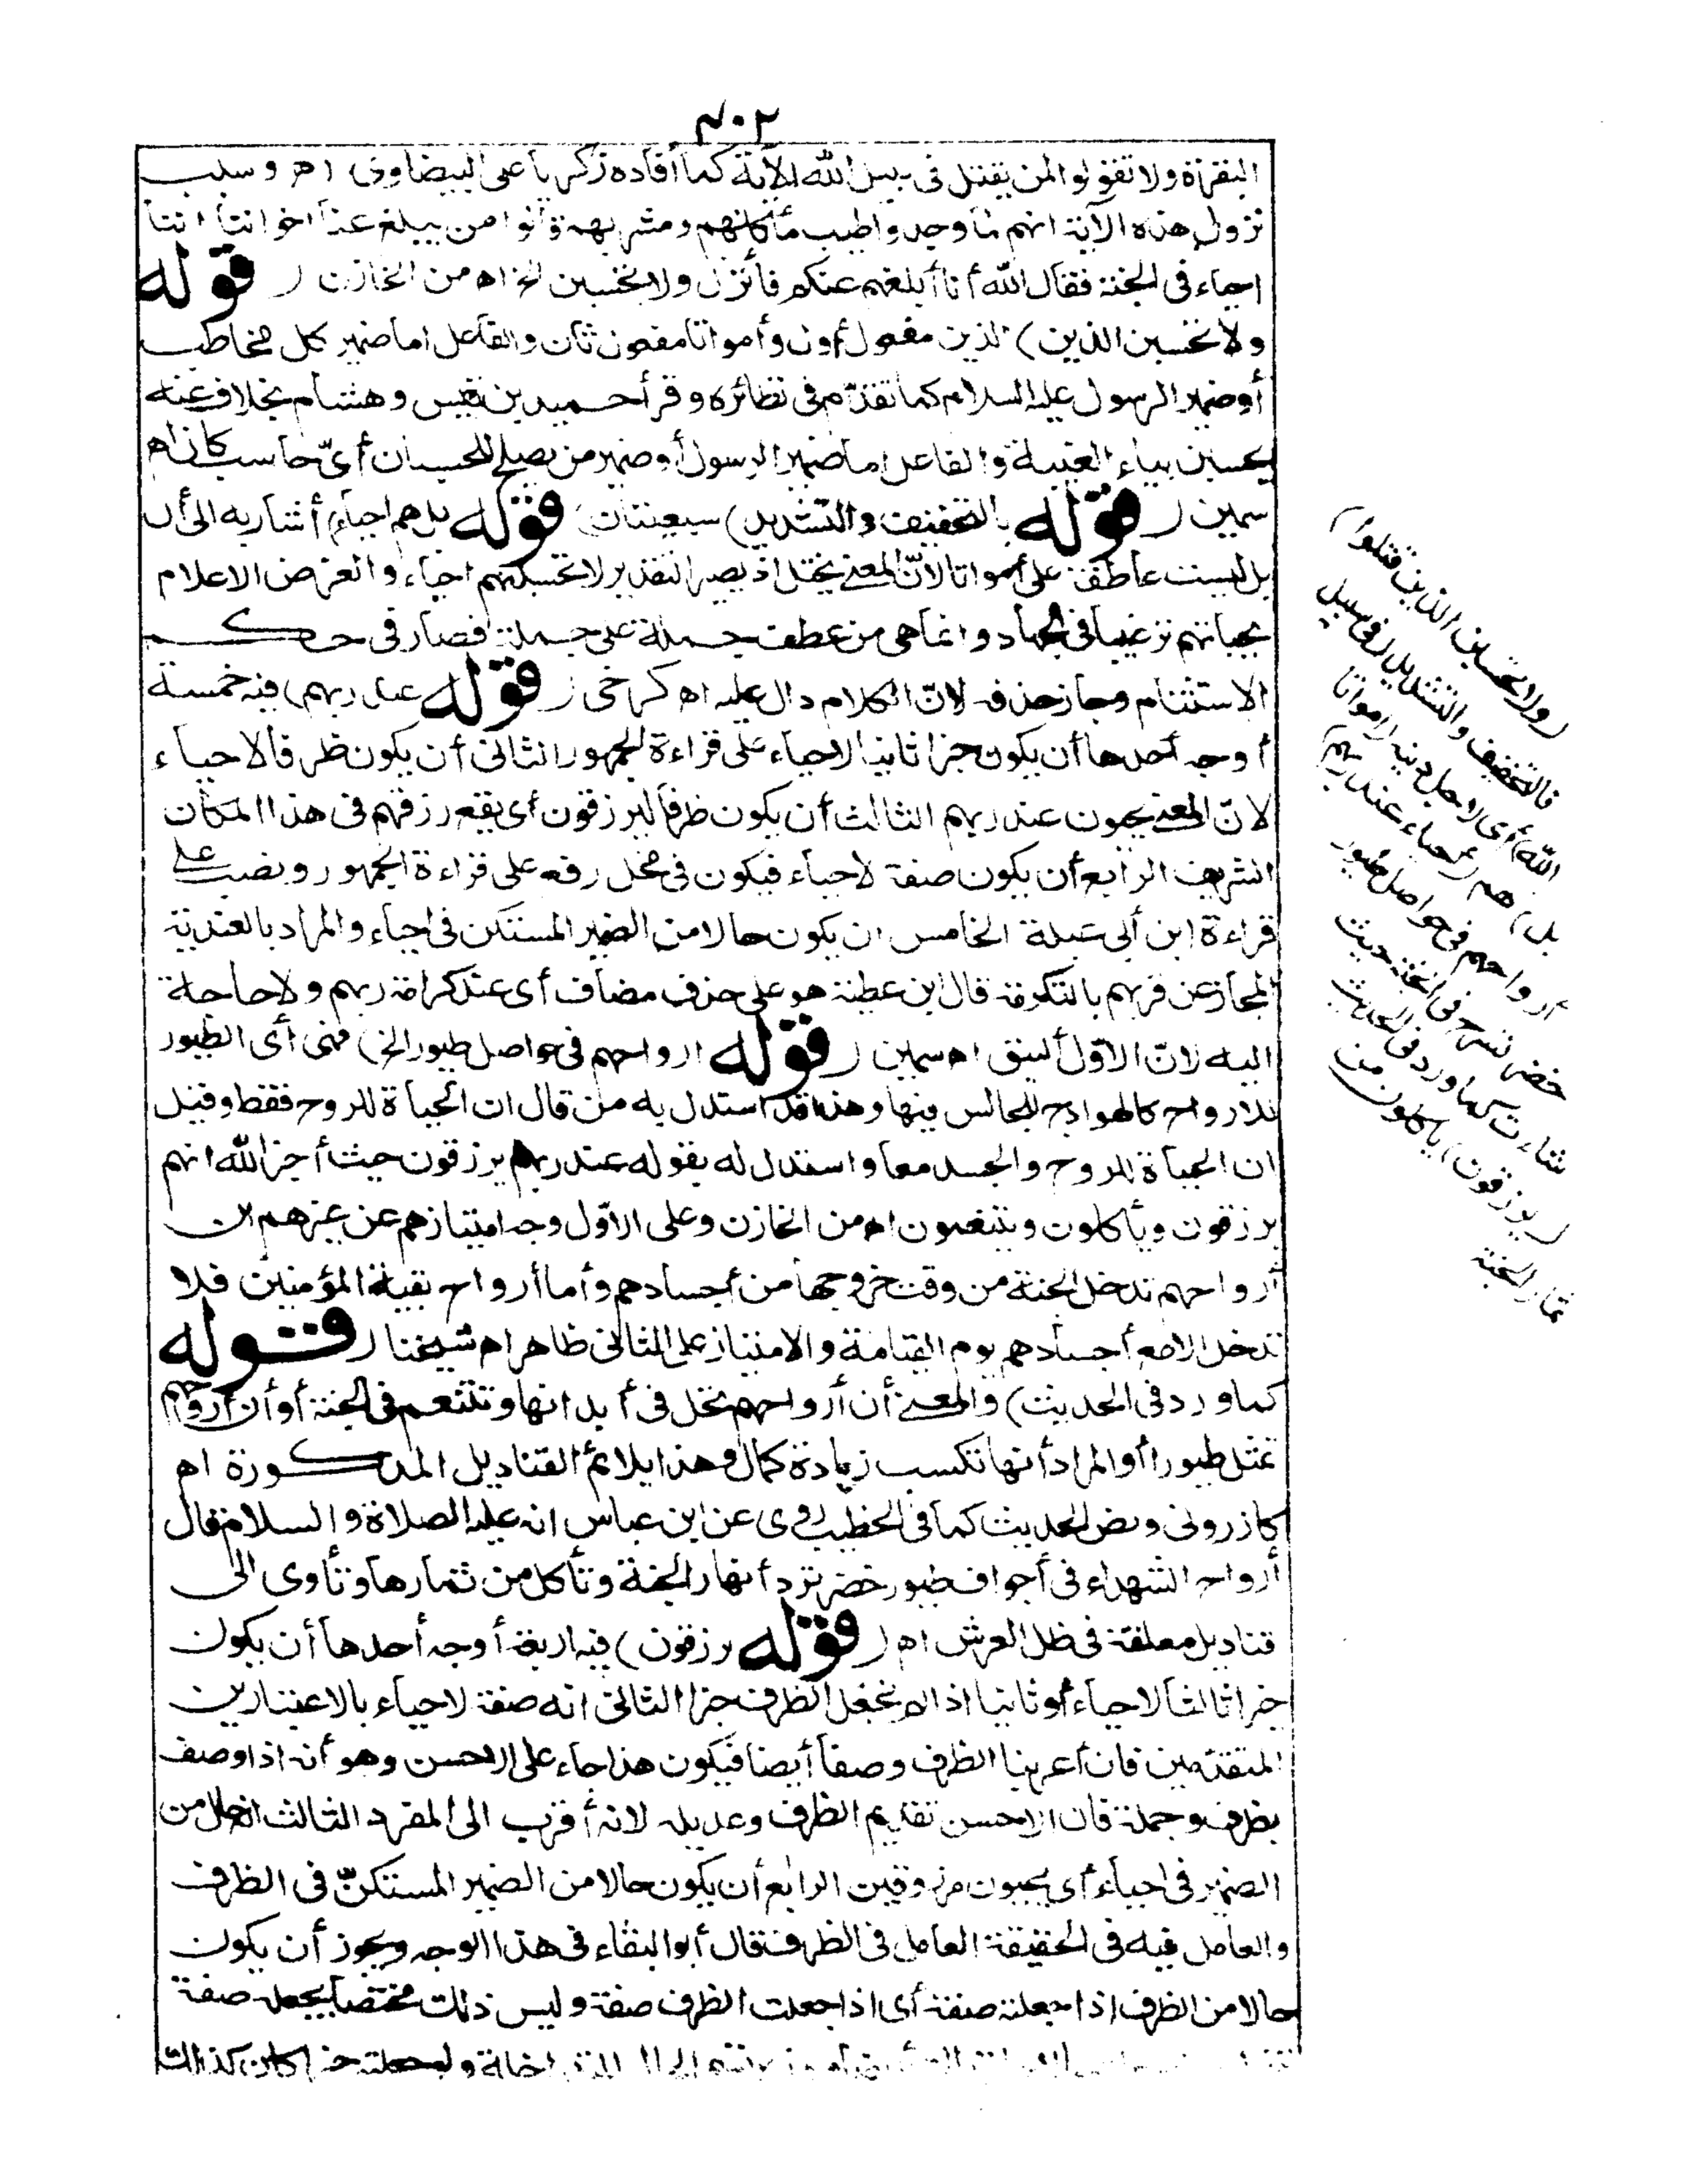 ٤٠٢
البقرة ولا تقولوا لمن يقتل فى سبيل الله الآية كما أفاده زكريا على البيضاوى اه وسبب
نزول هذه الآية انهم لما وجدوا طيب مأكلهم ومشربهم قالوا من يبلغ عنا اخواننا اننا
احياء فى الجنة فقال الله أنا أبلغهم عنكم فأنزل ولا تحسبن الخ اه من الخازن (قوله
ولا تحسبن الذين) الذين مفعول أول وأمواتا مفعول ثان والفاعل اما ضمير كل مخاطب
أو ضمير الرسول عليه السلام كما تقدّم فى نظائره وقرأ حميد بن قيس وهشام بخلاف عنه
يحسبن بياء الغيبة والفاعل اما ضمير الرسول أو ضمير من يصلح للحسبان أىّ حاسب كان اه
سمين (قوله بالتخفيف والتشديد) سبعيتان (قوله بل هم احياء) أشار به الى أن
بل ليست عاطفة على أمواتا لانّ المعنى يختل اذ يصير التقدير لا تحسبنهم احياء والغرض الاعلام
بحياتهم ترغيبا فى الجهاد وانما هى من عطف جملة على جملة فصار فى حكم
الاستئنام وجاز حذفه لانّ الكلام دال عليه اه كرخى (قوله عند ربهم) فيه خمسة
أوجه أحدها أن يكون خبرا ثانيا لاحياء على قراءة الجمهور الثانى أن يكون ظرفا لاحياء
لانّ المعنى يحيون عند ربهم الثالث أن يكون ظرفا ليرزقون أى يقع رزقهم فى هذا المكان
الشريف الرابع أن يكون صفة لاحياء فيكون فى محل رفع على قراءة الجمهور ونصب على
قراءة ابن أبى عبلة الخامس ان يكون حالا من الضمير المستكن فى احياء والمراد بالعندية
المجاز عن قربهم بالتكرمة قال ابن عطية هو على حذف مضاف أى عند كرامة ربهم ولا حاجة
اليه لانّ الاوّل أليق اه سمين (قوله ارواحهم فى حواصل طيور الخ) فهى أى الطيور
للارواح كالهوادج للجالس فيها وهذا قد استدل به من قال ان الحياة للروح فقط وقيل
ان الحياة للروح والجسد معا واستدل له بقوله عند ربهم يرزقون حيث أخبر الله انهم
يرزقون ويأكلون ويتنعمون اه من الخازن وعلى الاوّل وجه امتيازهم عن غيرهم ان
أرواحهم تدخل الجنة من وقت خروجها من أجسادهم وأما أرواح بقية المؤمنين فلا
تدخل الا مع أجسادهم يوم القيامة والامتياز على الثانى ظاهر اه شيخنا (قوله
كما ورد فى الحديث) والمعنى أن أرواحهم تحل فى أبدانها وتتنعم فى الجنة أو أن أرواحهم
تمثل طيورا أو المراد أنها تكسب زيادة كمال وهذا يلائم القناديل المذكورة اه
كازرونى ونص الحديث كما فى الخطيب روى عن ابن عباس انه عليه الصلاة والسلام قال
أرواح الشهداء فى أجواف طيور خضر ترد أنهار الجنة وتأكل من ثمارها وتأوى الى
قناديل معلقة فى ظل العرش اه (قوله يرزقون) فيه اربعة أوجه أحدها أن يكون
خبرا ثالثا لاحياء أو ثانيا اذا لم نجعل الظرف خبرا الثانى انه صفة لاحياء بالاعتبارين
المتقدّمين فان أعربنا الظرف وصفا أيضا فيكون هذا جاء على الاحسن وهو أنه اذا وصف
بظرف وجملة فان الاحسن تقديم الظرف وعديله لانه أقرب الى المفرد الثالث انه حال من
الضمير فى احياء أى يحيون مرزوقين الرابع أن يكون حالا من الضمير المستكنّ فى الظرف
والعامل فيه فى الحقيقة العامل فى الظرف قال أبو البقاء فى هذا الوجه ويجوز أن يكون
حالا من الظرف اذا جعلته صفة أى اذا جعلت الظرف صفة وليس ذلك مختصا بجعله صفة
ولو جعلته خبرا كان كذلك
(ولا تحسبن الذين قتلوا)
بالتخفيف والتشديد (فى سبيل
الله) أى لاجل دينه (امواتا
بل) هم (احياء عند ربهم)
أرواحهم فى حواصل طيور
خضر تسرح فى الجنة حيث
شاءت كما ورد فى الحديث
(يرزقون) يأكلون من
ثمار الجنة